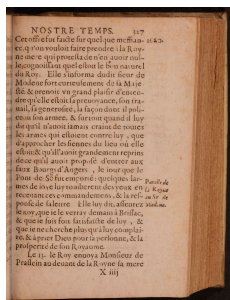 NOSTRE TEMPS. 327
Cet office fut faicte sur quelque meffian-
ce, qu'on vouloit faire prendre à la Roy-
ne mere qui protesta de n'en auoir nul-
le, cognoissant quel estoit le bon naturel
du Roy. Elle s'informa dudit sieur de
Modene fort curieusement de sa Maje-
sté, & prenoit vn grand plaisir d'enten-
dre qu'elle estoit sa preuoyance, son tra-
uail, sa generosité, la façon dont il poli-
çoit son armee, & sur tout quand il luy
dit qu'il n'auoit iamais craint de toutes
les armes qui estoient contre luy, que
d'approcher les siennes du lieu où elle
estoit: & qu'il l'auoit grandement repris
de ce qu'il auoit d'entrer aux
faux Bourgs d'Angers, le iour que le
Pont de Sé fut emporté: quelques lar-
mes de ioye luy tomberent des yeux en
receuant ces commandemens, & la res-
ponse fut telle. Elle luy dit, asseurez
le Roy, que ie le verray demain à Brissac,
& que ie suis fort satisfaicte de luy, &
que ie ne cherche plus qu'à luy complai-
re, & à prier Dieu pour sa personne, & la
prosperité de son Royaume.
Le 13. le Roy enuoya Monsieur de
Praslain au deuant de la Royne sa mere
X iiij
1620.
de
la Royne
au Sr de